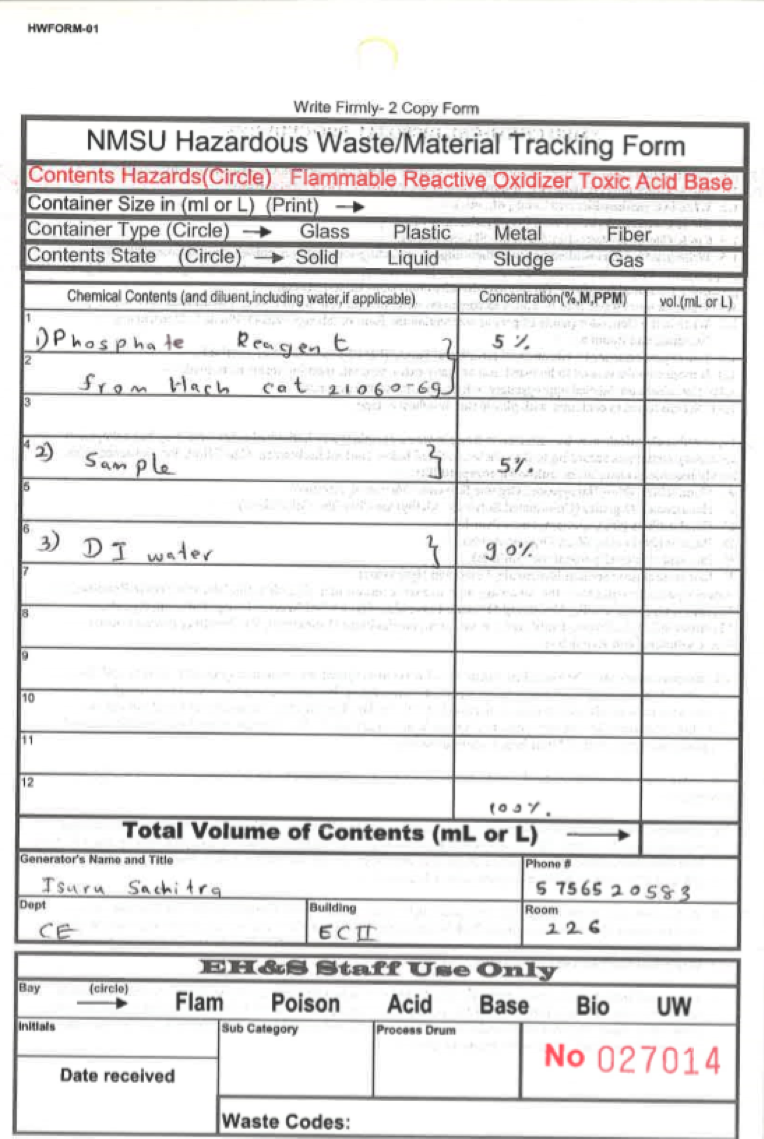 HWFORM-01
Write Firmly- 2 Copy Form
NMSU Hazardous Waste/Material Tracking Form
Contents Hazards(Circle) Flammable Reactive Oxidizer Toxic Acid Base
Container Size in (ml or L) (Print) →
Container Type (Circle) → Glass Plastic Metal Fiber
Contents State (Circle) → Solid Liquid Sludge Gas
Chemical Contents (and diluent,including water,if applicable) Concentration(%,M,PPM) vol.(mL or L)
1
1) Phosphate Reagent } 5 %
2
from Hach cat 21060-69
3
4 2) Sample } 5%.
5
6
3) DI water } 90%
7
8
9
10
11
12
100%.
Total Volume of Contents (mL or L) →
Generator's Name and Title Phone #
Isuru Sachitra 5756520583
Dept Building Room
CE ECII 226
EH&S Staff Use Only
Bay (circle) → Flam Poison Acid Base Bio UW
Initials Sub Category Process Drum
No 027014
Date received
Waste Codes: